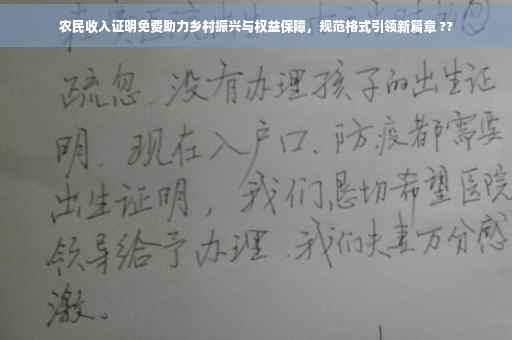 农民收入证明免费助力乡村振兴与权益保障，规范格式引领新篇章 ??
疏忽、没有办理孩子的出生证
明、现在入户口、防疫都需要
出生证明，我们恳切希望医院
领导给予办理、我们夫妻万分感
激。